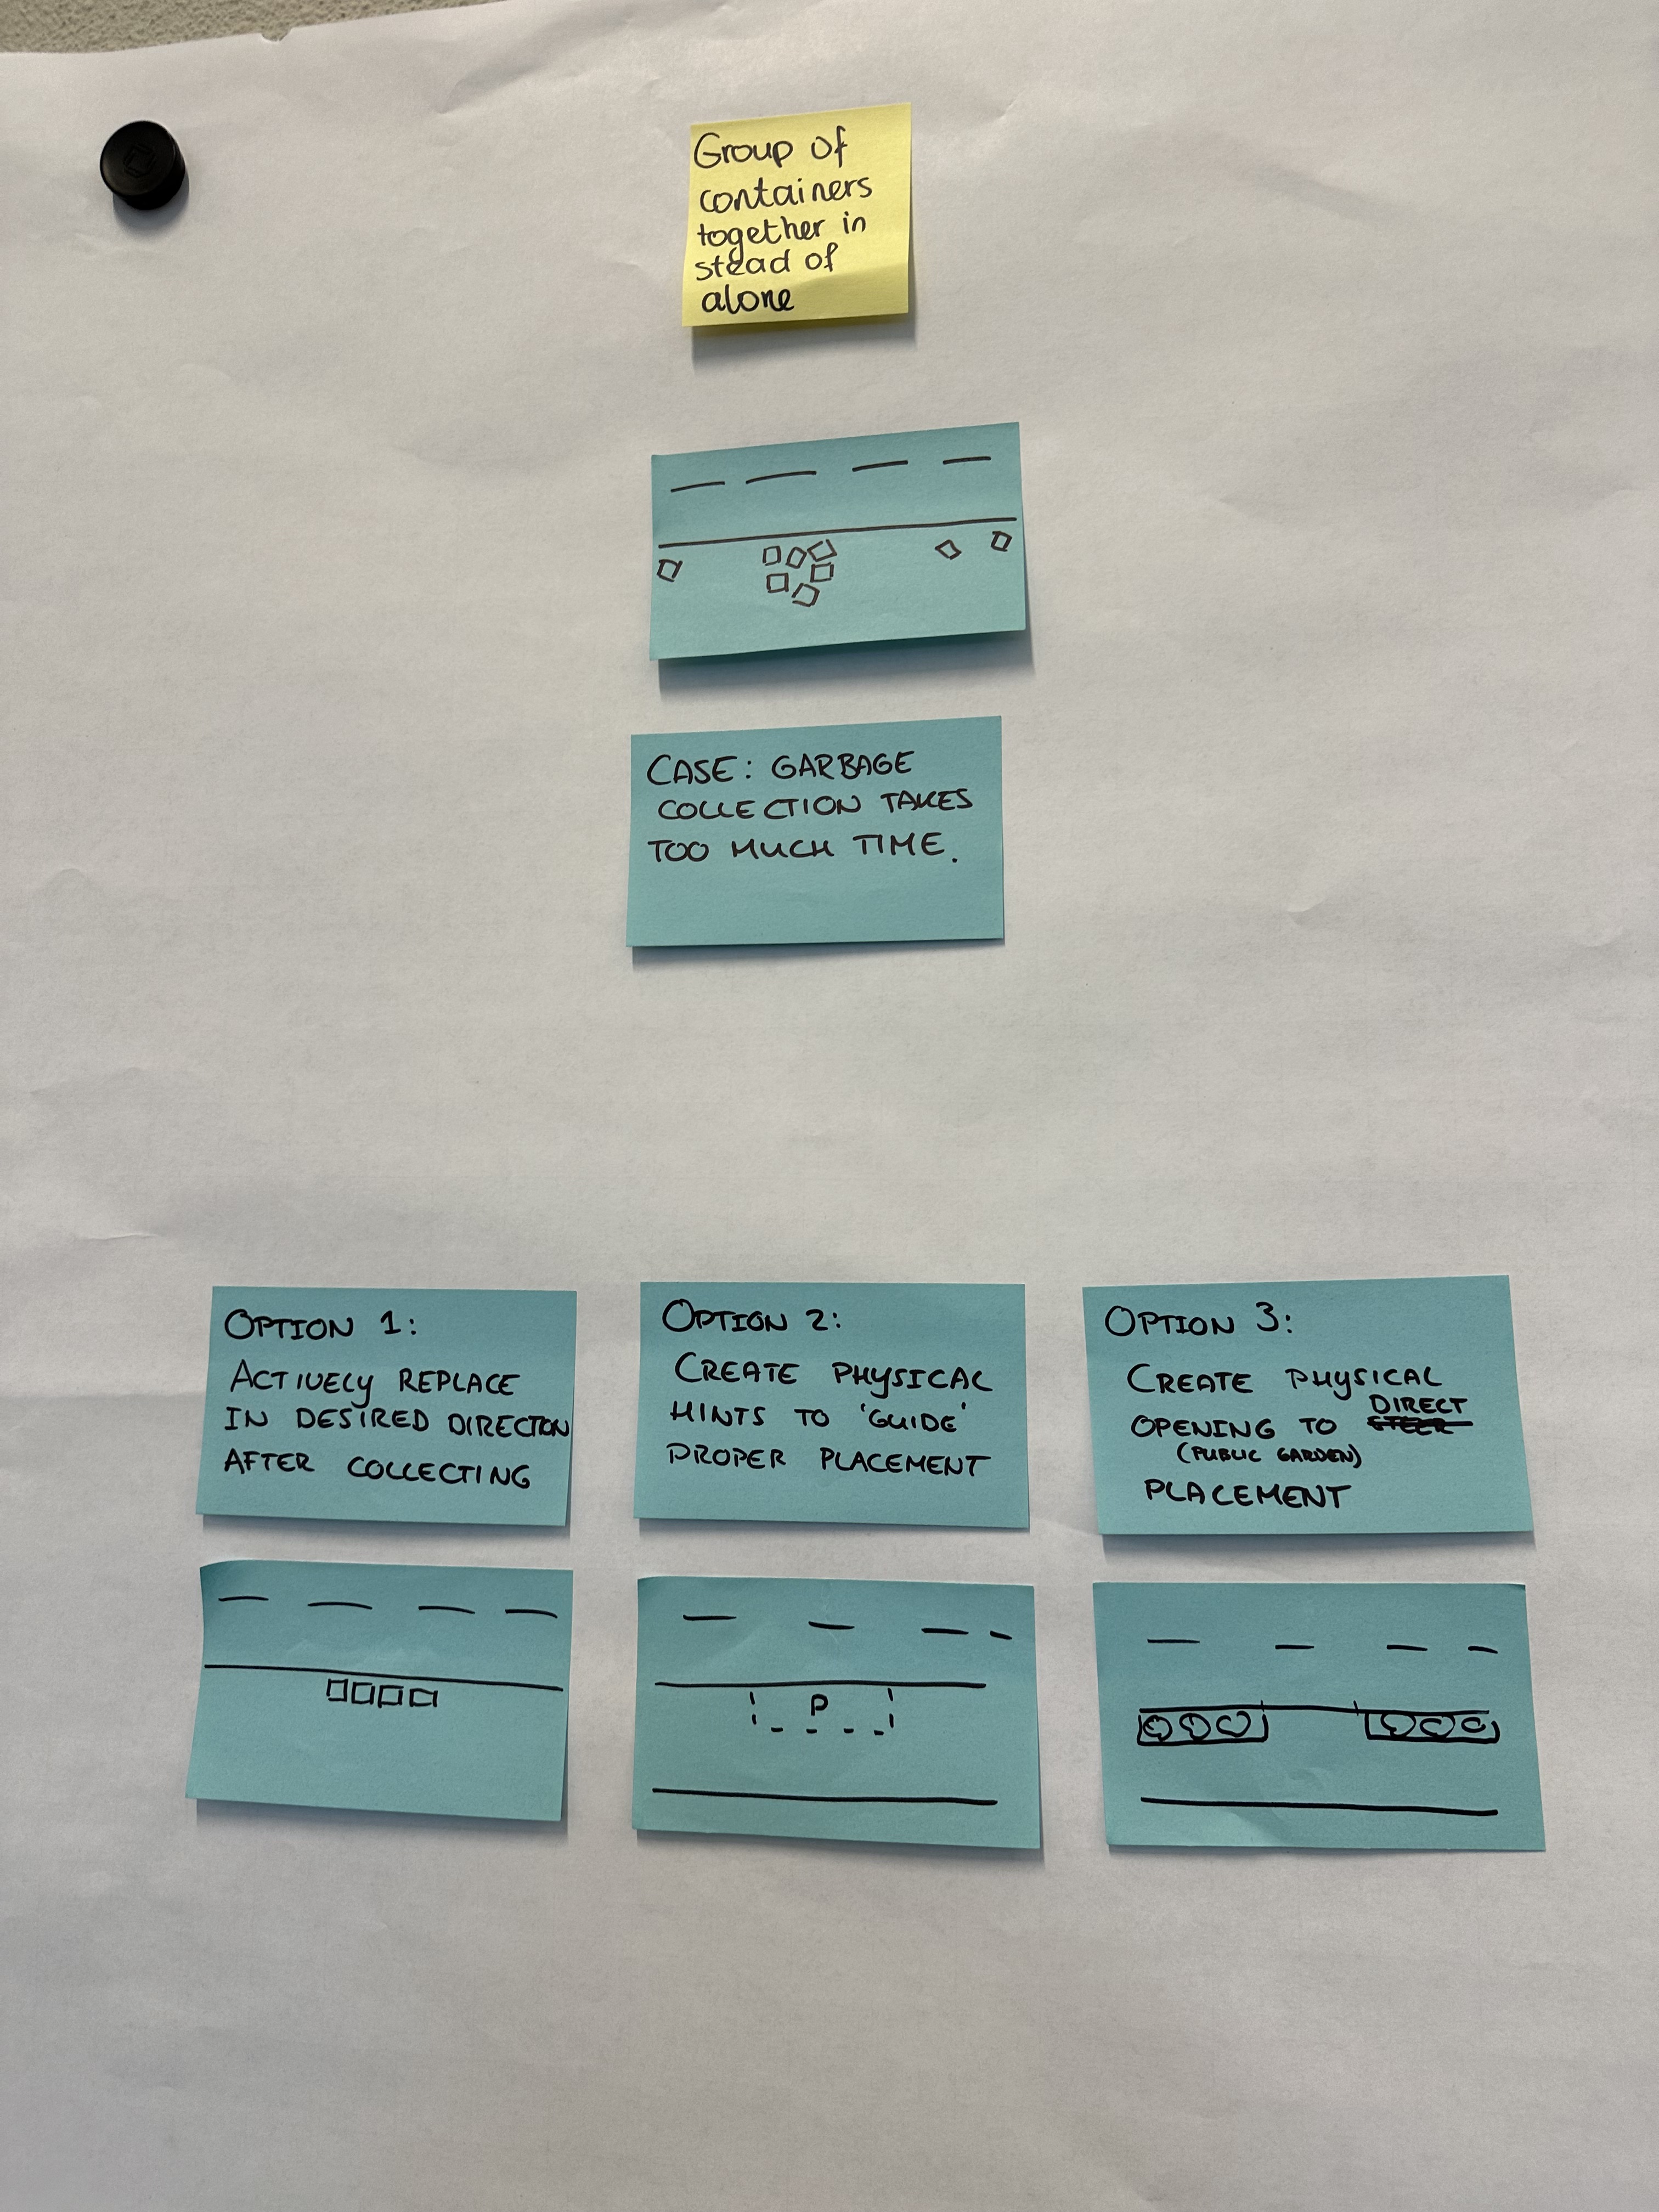 Group of
containers
together in
stead of
alone
CASE: GARBAGE
COLLECTION TAKES
TOO MUCH TIME.
OPTION 1:
ACTIVELY REPLACE
IN DESIRED DIRECTION
AFTER COLLECTING
OPTION 2:
CREATE PHYSICAL
HINTS TO 'GUIDE'
PROPER PLACEMENT
OPTION 3:
CREATE PHYSICAL
OPENING TO STEER DIRECT
(PUBLIC GARDEN)
PLACEMENT
P